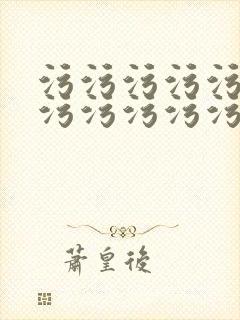 污污污污污
污污污污污
蕭皇後